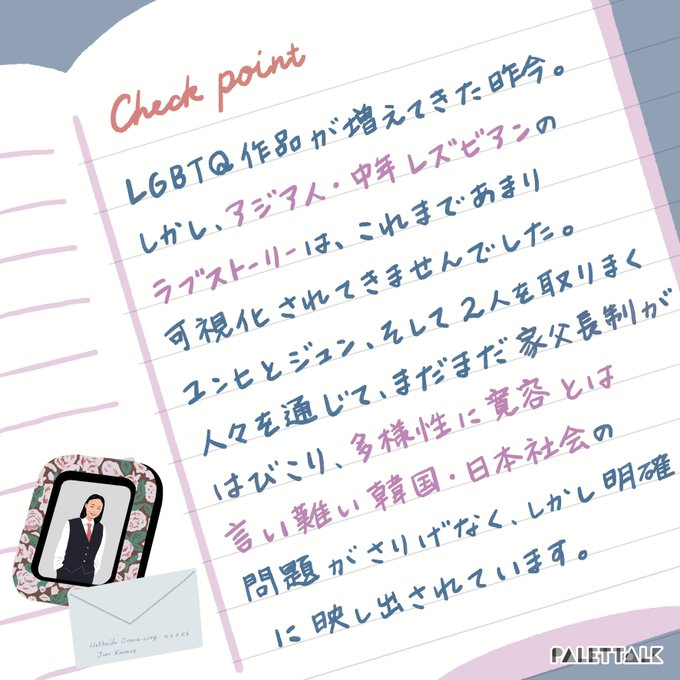 Check point
LGBTQ作品が増えてきた昨今。
しかし、アジア人・中年レズビアンの
ラブストーリーは、これまであまり
可視化されてきませんでした。
ユンヒとジュン、そして2人を取りまく
人々を通じて、まだまだ家父長制が
はびこり、多様性に寛容とは
言い難い韓国・日本社会の
問題がさりげなく、しかし明確
に映し出されています。
Hokkaido Otaru-city xxxxx
Jun
PALETTALK